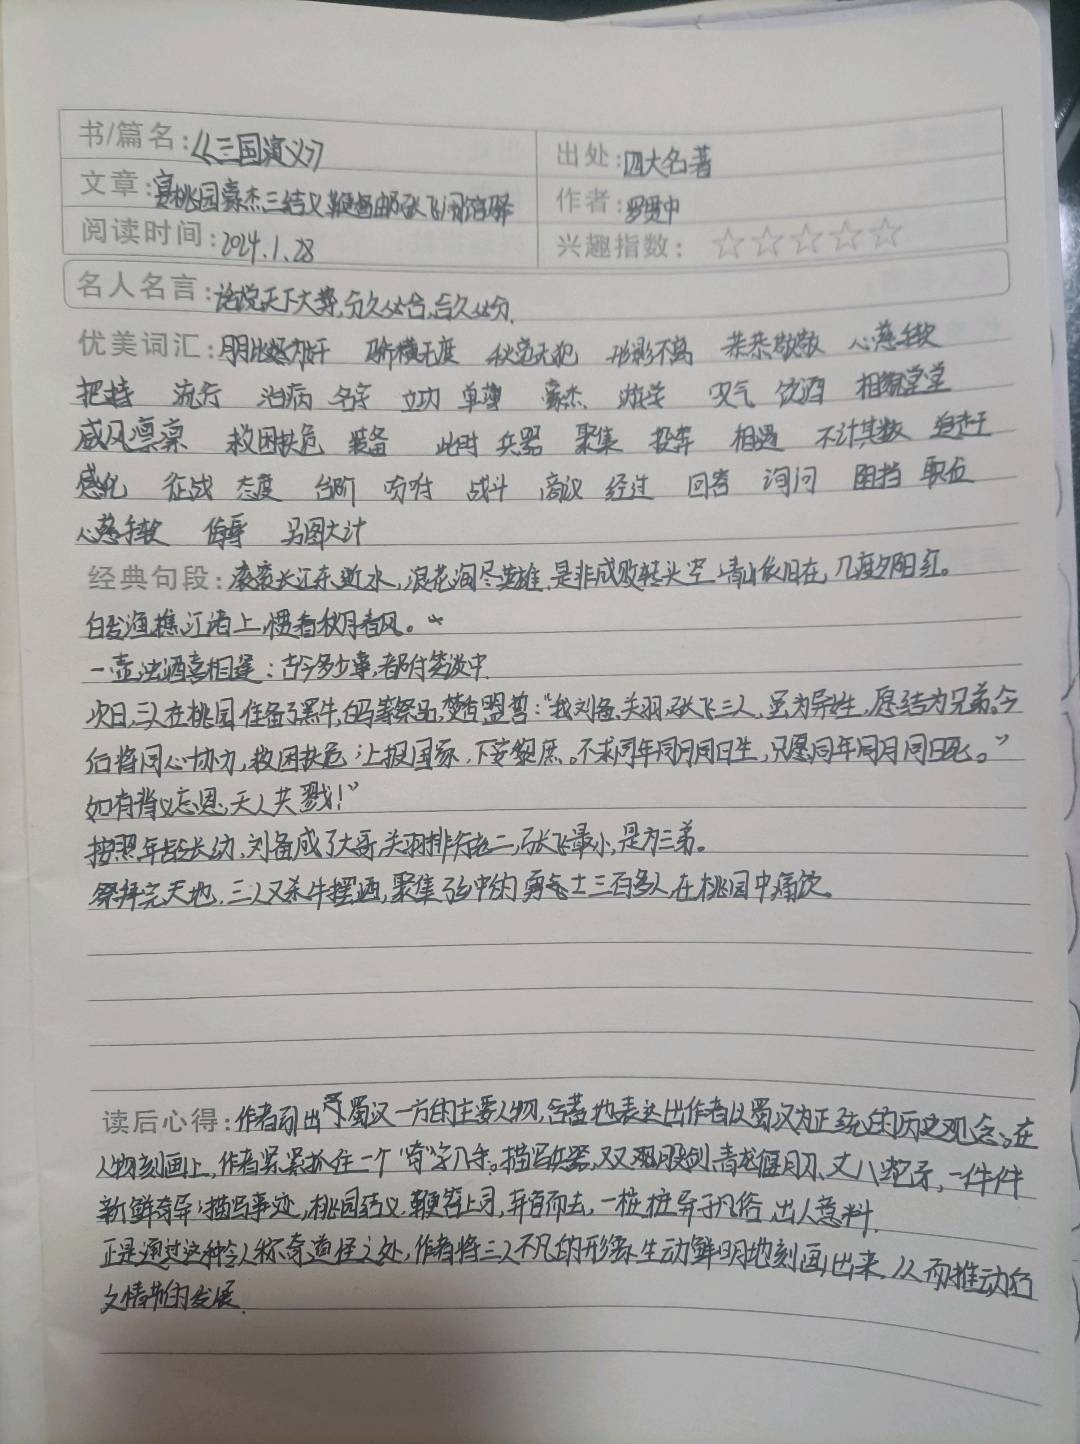 书/篇名：《三国演义》
出处：四大名著
文章：宴桃园豪杰三结义 鞭督邮张飞闹馆驿
作者：罗贯中
阅读时间：2024.1.28
兴趣指数：☆☆☆☆☆
名人名言：话说天下大势，分久必合，合久必分。
优美词汇：朋比为奸 骄横无度 秋毫无犯 形影不离 恭恭敬敬 心慈手软
把持 流行 治病 名字 立功 单薄 豪杰 游学 叹气 饮酒 相貌堂堂
威风凛凛 救困扶危 装备 此时 兵器 聚集 投奔 相遇 不计其数 追赶
感化 征战 态度 台阶 吩咐 战斗 商议 经过 回答 询问 阻挡 职位
心慈手软 侮辱 另图大计
经典句段：滚滚长江东逝水，浪花淘尽英雄，是非成败转头空，青山依旧在，几度夕阳红。
白发渔樵江渚上，惯看秋月春风。
一壶浊酒喜相逢：古今多少事，都付笑谈中。
次日，三人在桃园准备了黑牛，白马等祭品，焚香盟誓：“我刘备、关羽、张飞三人，虽为异姓，愿结为兄弟。今
后将同心协力，救困扶危；上报国家，下安黎庶。不求同年同月同日生，只愿同年同月同日死。”
如有背义忘恩，天人共戮！”
按照年龄长幼，刘备成了大哥，关羽排行老二，张飞最小，是为三弟。
祭拜完天地，三人又杀牛摆酒，聚集了乡中的勇士三百多人，在桃园中痛饮。
读后心得：作者引出了蜀汉一方的主要人物，含蓄地表达出作者以蜀汉为正统的历史观念。在
人物刻画上，作者紧紧抓住一个“奇”字入手。描写兵器，双股剑，青龙偃月刀，丈八蛇矛，一件件
新鲜奇异；描写事迹，桃园结义，鞭笞上司，弃官而去，一桩桩异于凡俗，出人意料，
正是通过这种令人称奇道怪之处，作者将三人不凡的形象生动鲜明地刻画出来，从而推动行
文情节的发展